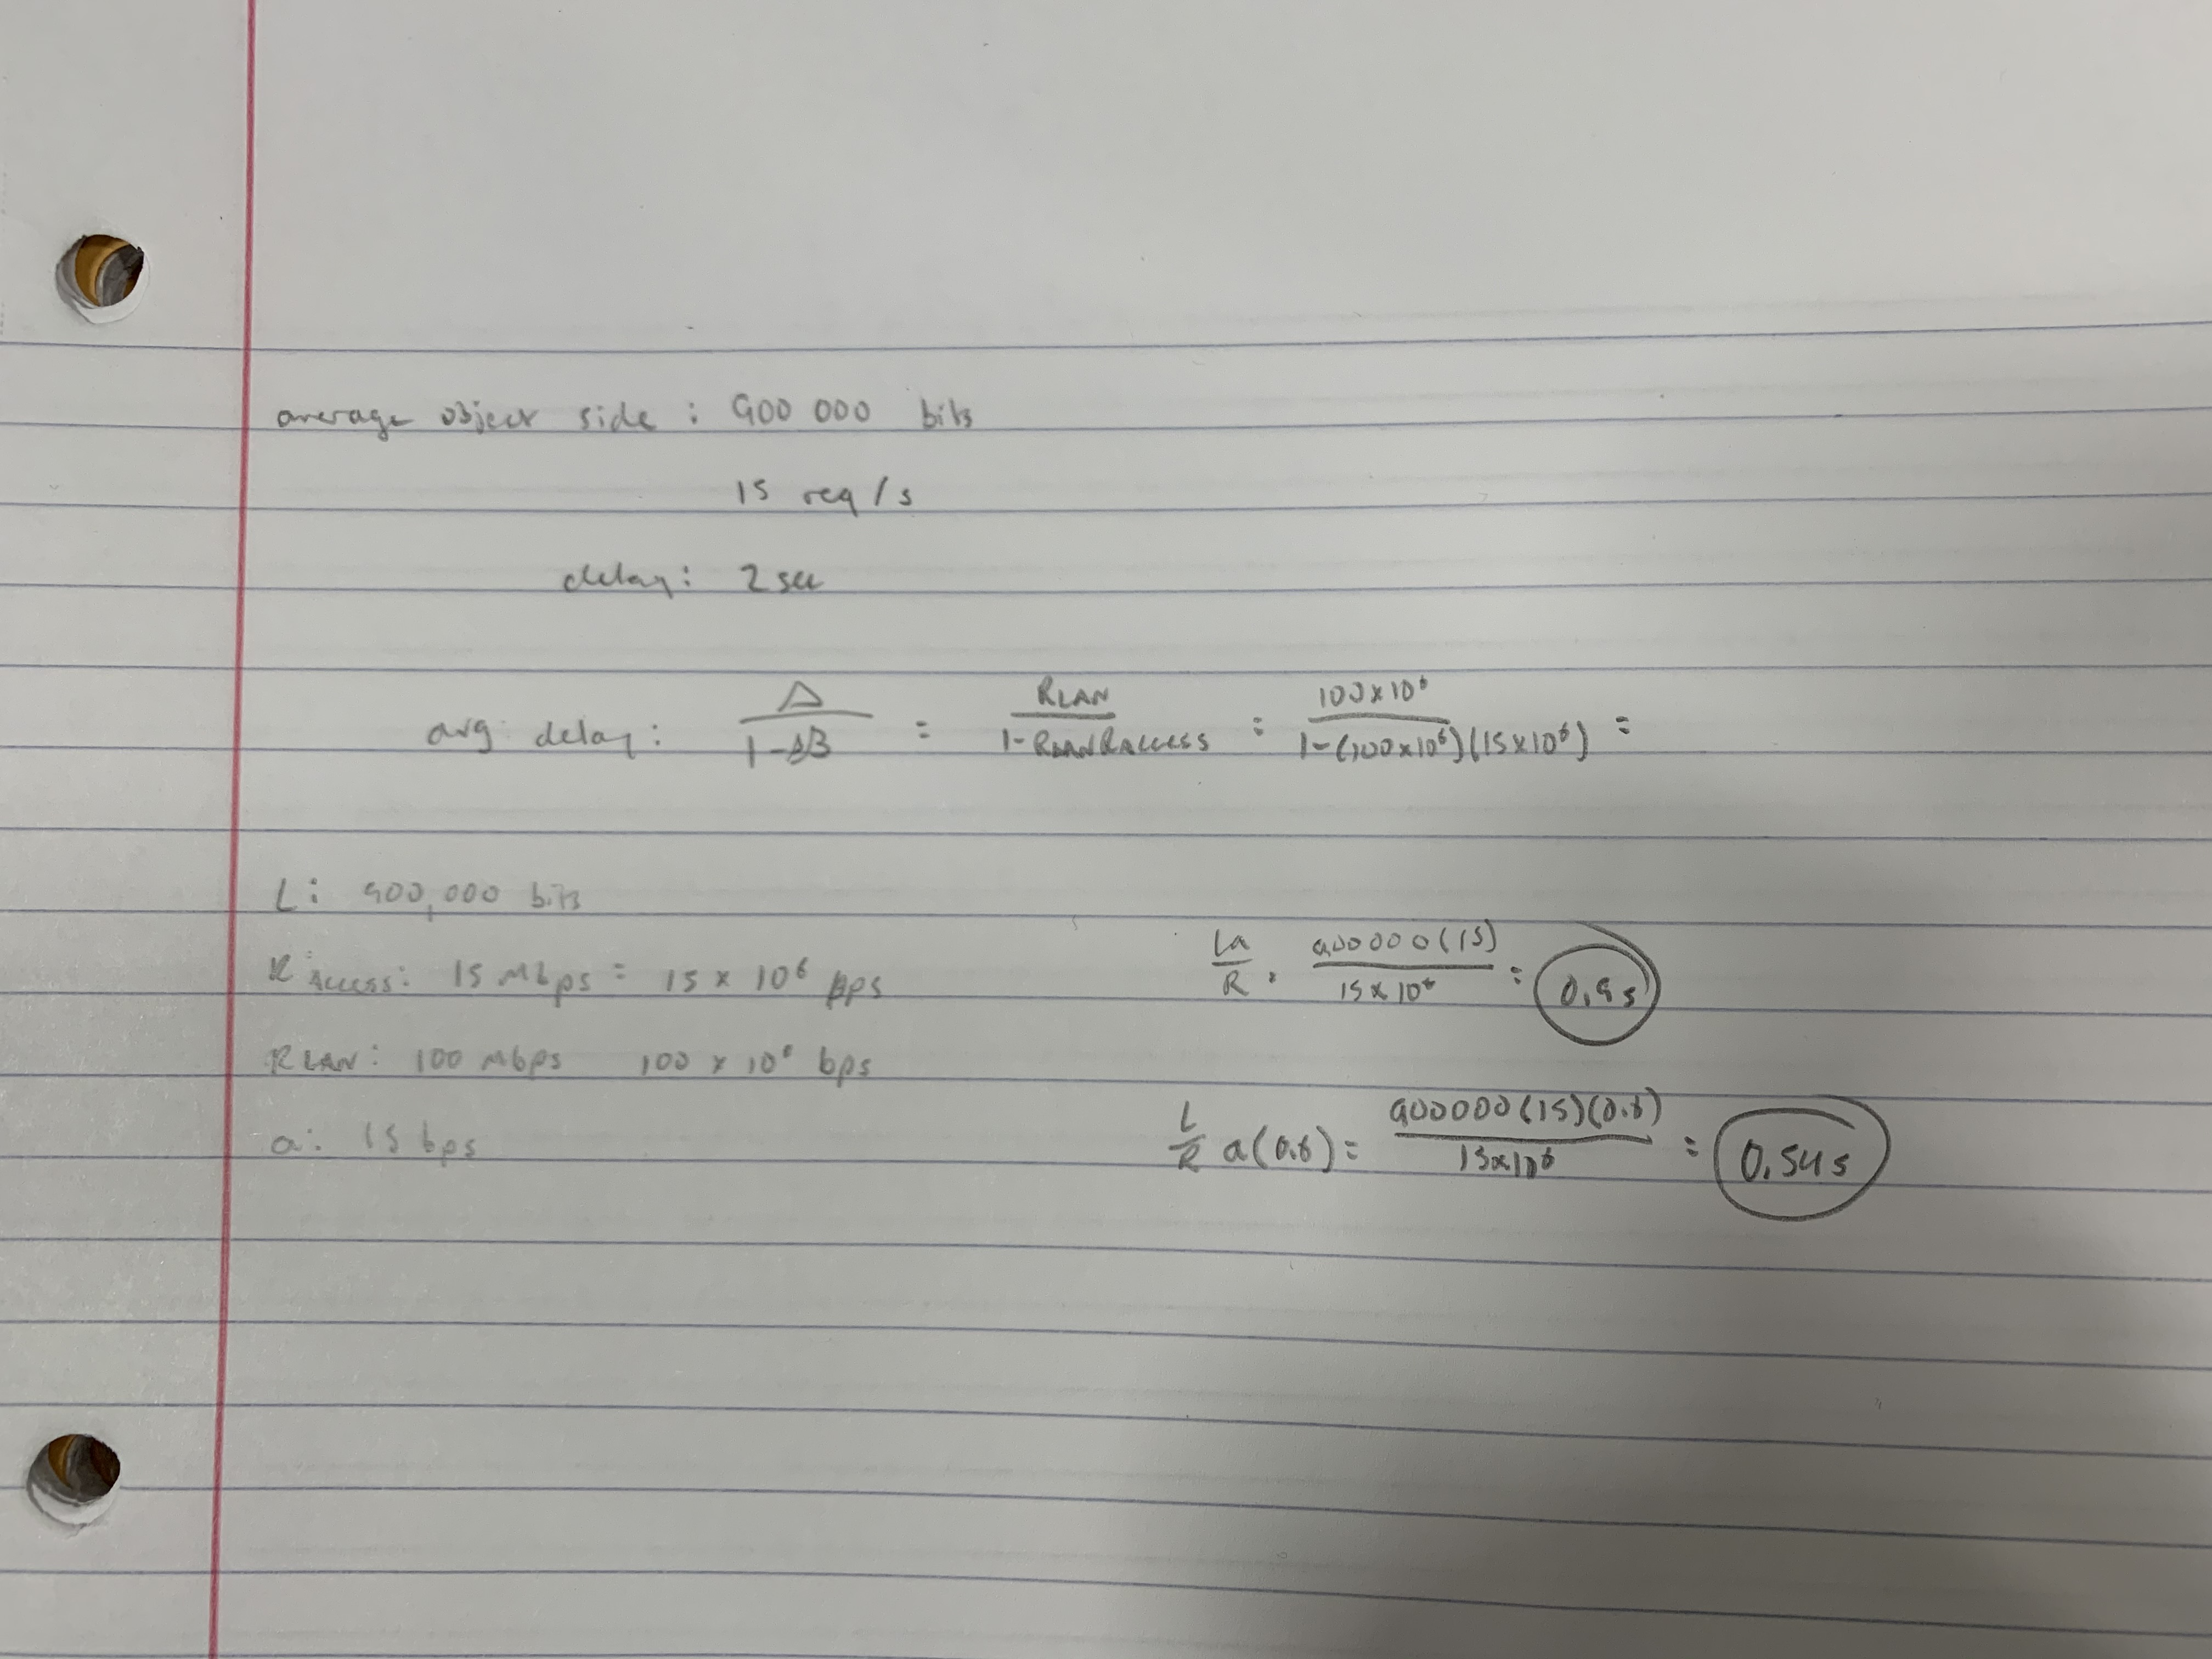 average object side : 900 000 bits
15 req/s
delay: 2 sec
avg. delay: Δ / 1-ΔB = RLAN / 1-RLANRAccess = 100x10⁶ / 1-(100x10⁶)(15x10⁶) =
L: 900,000 bits
R Access: 15 Mbps = 15 x 10⁶ bps
La / R = 900000(15) / 15x10⁶ = 0.9s
RLAN: 100 Mbps 100 x 10⁶ bps
a: 15 bps
L/R a(0.6) = 900000(15)(0.6) / 15x10⁶ = 0.54s